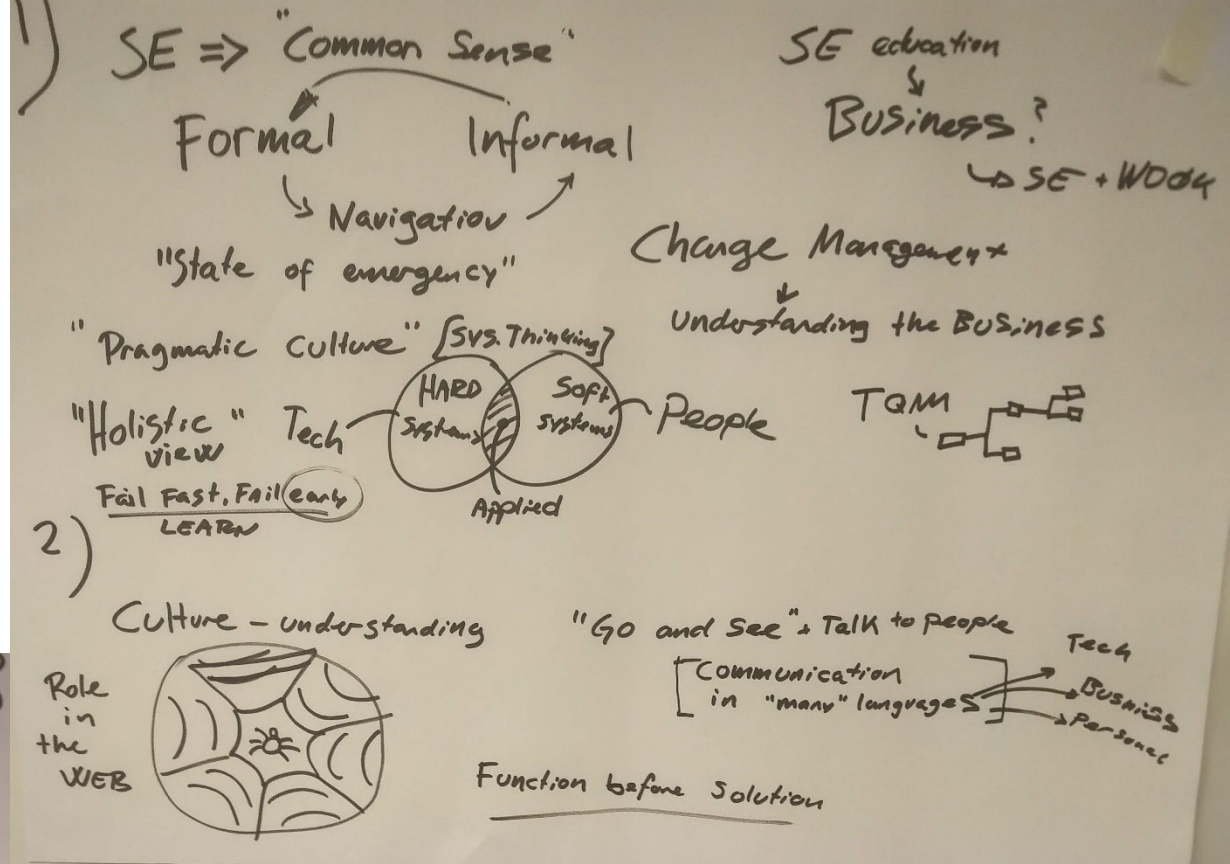 1)
SE => "Common Sense"
Formal Informal
Navigation
"State of emergency"
"Pragmatic culture" [Sys. Thinking]
"Holistic view"
Tech
HARD systems
Soft systems
People
Applied
Fail Fast, Fail early
LEARN
SE education
Business?
SE + WOOK
Change Management
Understanding the Business
TQM
2)
Culture - understanding
Role
in
the
WEB
"Go and see" + Talk to people
[Communication
in "many" languages]
Tech
Business
Personal
Function before solution